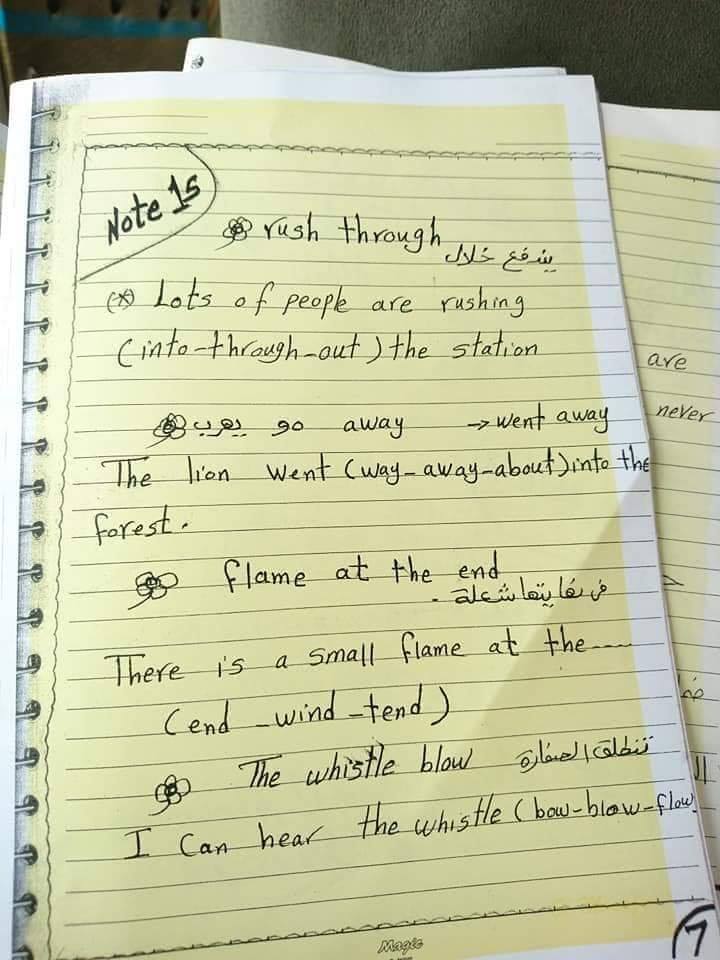 Note 15
rush through
يندفع خلال
(*) Lots of people are rushing
(into-through-out) the station
يهرب go away → went away
The lion went (way-away-about) into the
forest.
flame at the end
فى نهايتها شعلة.
There is a small flame at the ----
(end - wind - tend)
The whistle blow تنطلق الصفارة
I Can hear the whistle (bow-blow-flow
are
never
Magic
7